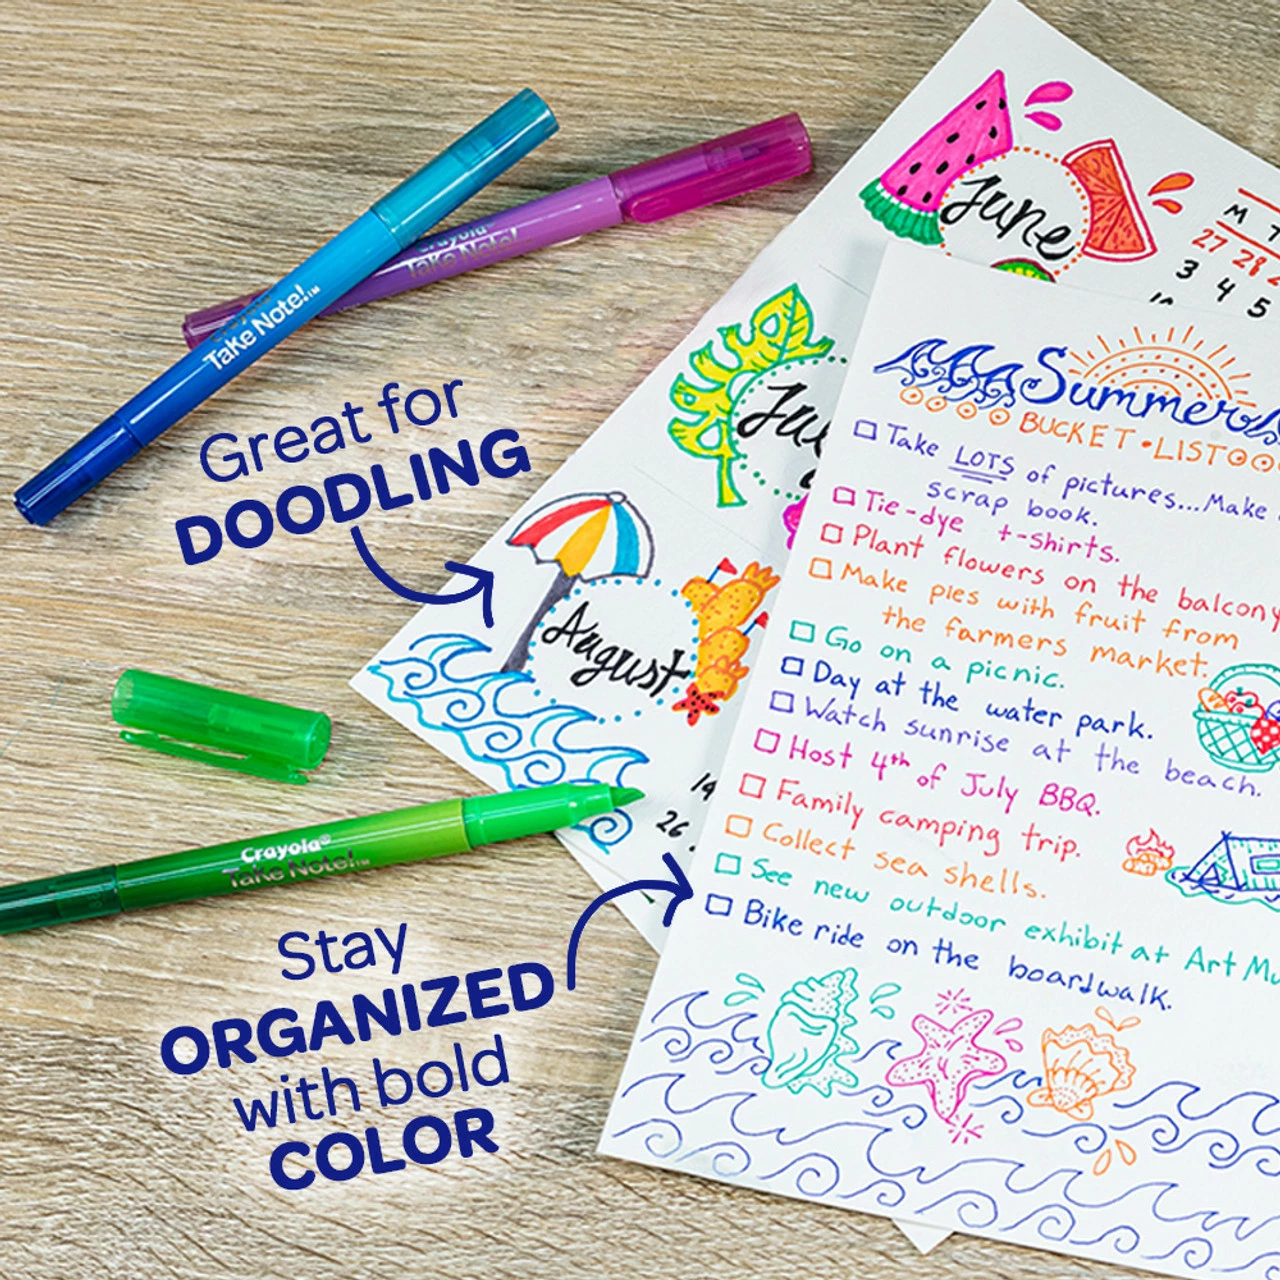 Crayola
Take Note!™
Crayola®
Take Note!
Great for
DOODLING
June
M T
27 28 2
3 4 5
10
August
14
26
Summer
BUCKET•LIST
Take LOTS of pictures...Make
scrap book.
Tie-dye t-shirts.
Plant flowers on the balcony
Make pies with fruit from
the farmers market.
Go on a picnic.
Day at the water park.
Watch sunrise at the beach.
Host 4th of July BBQ.
Family camping trip.
Collect sea shells.
See new outdoor exhibit at Art Mu
Bike ride on the boardwalk.
Crayola®
Take Note!™
Stay
ORGANIZED
with bold
COLOR